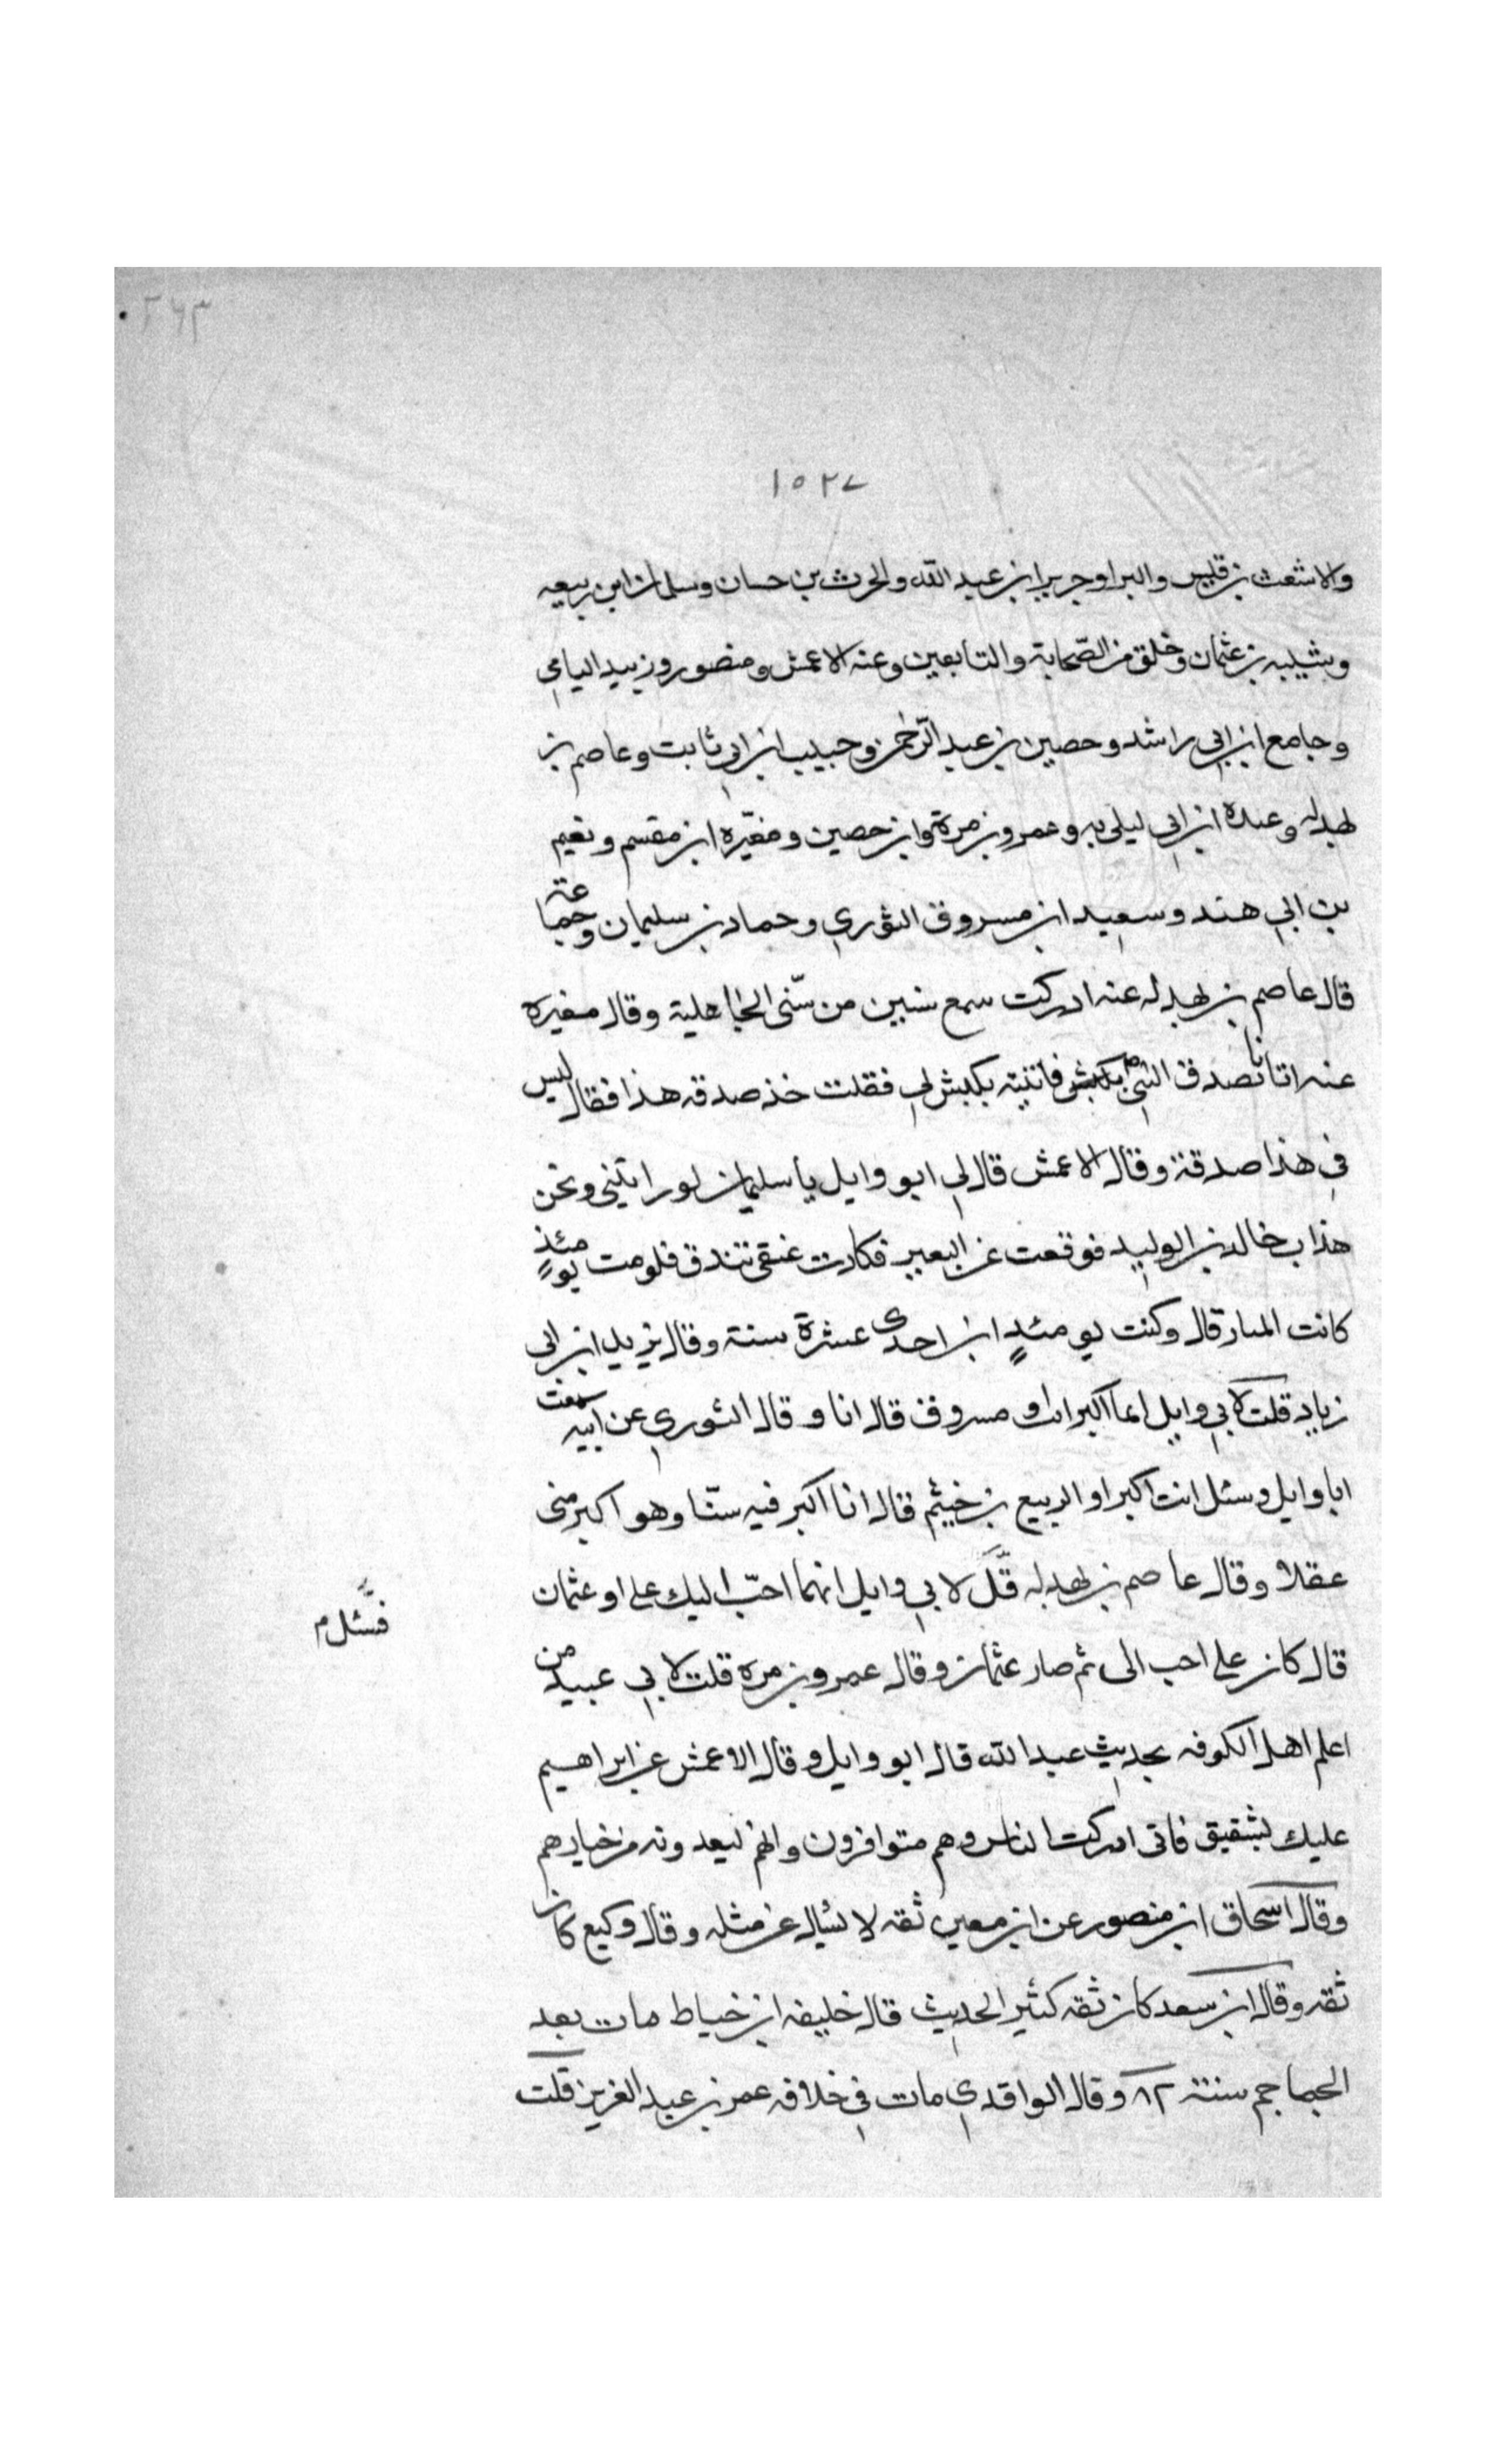 ٢٦٣
١٥٢٧
والاشعث بن قيس والبرا وجرير ابن عبد الله والحرث بن حسان وسلمان ابن ربيعه
وشيبه بن عثمان وخلق من الصّحابة والتابعين وعنه الاعمش ومنصور وزبيد اليامي
وجامع ابن ابي راشد وحصين بن عبد الرّحمن وحبيب ابن ابي ثابت وعاصم بن
بهدله وعبدة ابن ابي ليلى به وعمرو بن مرة وابن حصين ومغيّره ابن مقسم ونعيم
بن ابي هند وسعيد ابن مسروق الثوري وحماد بن سليمان وجماعة
قال عاصم بن بهدله عنه ادركت سبع سنين من سّنى الجاهلية وقال مغيره
عنه اتانا تصدق النبي ص بكبش فاتيته بكبش لي فقلت خذ صدقه هذا فقال ليس
في هذا صدقة وقال الاعمش قال لي ابو وايل يا سليمان لو رايتني ونحن
هذاب خالد بن الوليد فوقعت عن البعير فكادت عنقي تندق فلو مت يومئذٍ
كانت النار قال وكنت يومئدٍ ابن احدى عشرة سنة وقال يزيد ابن ابي
زياد قلت لابي وايل ايما اكبر انت او مسروق قال انا وقال الثوري عن ابيه سمعت
ابا وايل وسئل انت اكبر او الربيع بن خيثم قال انا اكبر فيه سنّا وهو اكبر منى
عقلا وقال عاصم بن بهدله قَّل لابي وايل ايهما احبّ اليك علي او عثمان
فسَّئل م
قال كان علي احب الى ثم صار عثمان وقال عمرو بن مره قلت لابي عبيد من
اعلم اهل الكوفه بحديث عبد الله قال ابو وايل وقال الاعمش عن ابراهيم
عليك بشقيق فاني ادركت الناس وهم متوافرون وانهم ليعدونه من خيارهم
وقال اسحاق ابن منصور عن ابن معين ثقه لا يسأل عن مثله وقال وكيع كان
ثقه وقال ابن سعد كان ثقه كثير الحديث قال خليفه ابن خياط مات بعد
الجماجم سنة ٨٢ وقال الواقدي مات في خلافه عمر بن عبد العزيز قلت